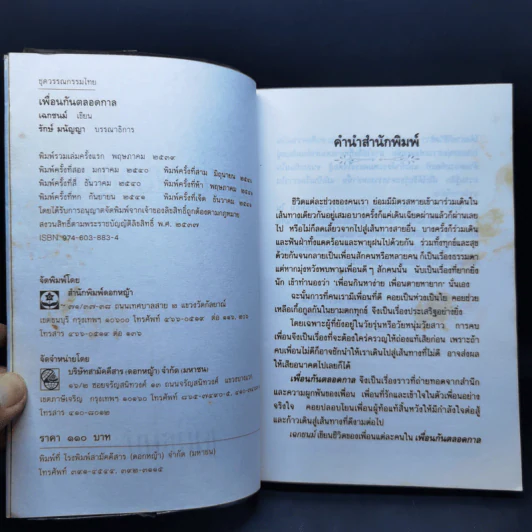 ชุดวรรณกรรมไทย
เพื่อนกันตลอดกาล
เฉกชนม์ เขียน
รักษ์ มนัญญา บรรณาธิการ
พิมพ์รวมเล่มครั้งแรก พฤษภาคม ๒๕๓๙
พิมพ์ครั้งที่สอง มกราคม ๒๕๔๐ พิมพ์ครั้งที่สาม มิถุนายน ๒๕๔๐
พิมพ์ครั้งที่สี่ ธันวาคม ๒๕๔๐ พิมพ์ครั้งที่ห้า พฤษภาคม
พิมพ์ครั้งที่หก กันยายน ๒๕๔๑ พิมพ์ครั้งที่เจ็ด ธันวาคม
โดยได้รับการอนุญาตจัดพิมพ์จากเจ้าของลิขสิทธิ์ถูกต้องตามกฎหมาย
สงวนลิขสิทธิ์ตามพระราชบัญญัติลิขสิทธิ์ พ.ศ. ๒๕๓๗
ISBN 974-603-683-4
จัดพิมพ์โดย
สำนักพิมพ์ดอกหญ้า
๗๑/๓๗-๓๘ ถนนเทศบาลสาย ๒ แขวงวัดกัลยาณ์
เขตธนบุรี กรุงเทพฯ ๑๐๖๐๐ โทรศัพท์ ๔๖๖-๐๕๑๙ ต่อ
โทรสาร ๔๖๖-๐๕๑๙ ต่อ ๑๓๖
จัดจำหน่ายโดย
บริษัทสามัคคีสาร (ดอกหญ้า) จำกัด (มหาชน)
๑๖/๒ ซอยจรัลสนิทวงศ์ ๑๓ ถนนจรัลสนิทวงศ์
เขตภาษีเจริญ กรุงเทพฯ ๑๐๑๖๐ โทรศัพท์
โทรสาร ๔๑๐-๘๐๑๒
ราคา ๑๑๐ บาท
พิมพ์ที่ โรงพิมพ์สามัคคีสาร (ดอกหญ้า) จำกัด (มหาชน)
โทรศัพท์
คำนำสำนักพิมพ์
ชีวิตแต่ละช่วงของคนเรา ย่อมมีมิตรสหายเข้ามาร่วมเดินใน
เส้นทางเดียวกันอยู่เสมอ บางครั้งก็แค่เดินเฉียดผ่านแล้วก็ผ่านเลย
ไป หรือไม่ก็ลดเลี้ยวจากไปสู่เส้นทางสายอื่น บางครั้งก็ร่วมเดิน
และฟันฝ่าทั้งแดดร้อนและพายุฝนไปด้วยกัน ร่วมทั้งทุกข์และสุข
ด้วยกันจนกลายเป็นเพื่อนสักคนหรือหลายคน ก็เป็นเรื่องธรรมดา
แต่หากมุ่งหวังพบพานเพื่อนดี ๆ สักคนนั้น นับเป็นเรื่องที่ยากยิ่ง
นัก เข้าทำนองว่า "เพื่อนกินหาง่าย เพื่อนตายหายาก" นั่นเอง
ฉะนั้นการที่คนเรามีเพื่อนที่ดี คอยเป็นห่วงเป็นใย คอยช่วย
เหลือเกื้อกูลกันในยามตกทุกข์ จึงเป็นเรื่องประเสริฐอย่างยิ่ง
โดยเฉพาะผู้ที่ยังอยู่ในวัยรุ่นหรือวัยหนุ่มวัยสาว การคบ
เพื่อนจึงเป็นเรื่องที่จะต้องใคร่ครวญให้ถ่องแท้เสียก่อน เพราะถ้า
คบเพื่อนไม่ดีก็อาจชักนำให้เราเดินไปสู่เส้นทางที่ไม่ดี อาจส่งผล
ให้เสียอนาคตไปเลยก็ได้
เพื่อนกันตลอดกาล จึงเป็นเรื่องราวที่ถ่ายทอดจากสำนึก
และความผูกพันของเพื่อน เพื่อนที่รักและเข้าใจในตัวเพื่อนอย่าง
จริงใจ คอยปลอบโยนเพื่อนผู้ท้อแท้สิ้นหวังให้มีกำลังใจต่อสู้
และก้าวเดินสู่เส้นทางที่ดีงามต่อไป
เฉกชนม์ เขียนชีวิตของเพื่อนแต่ละคนใน เพื่อนกันตลอดกาล